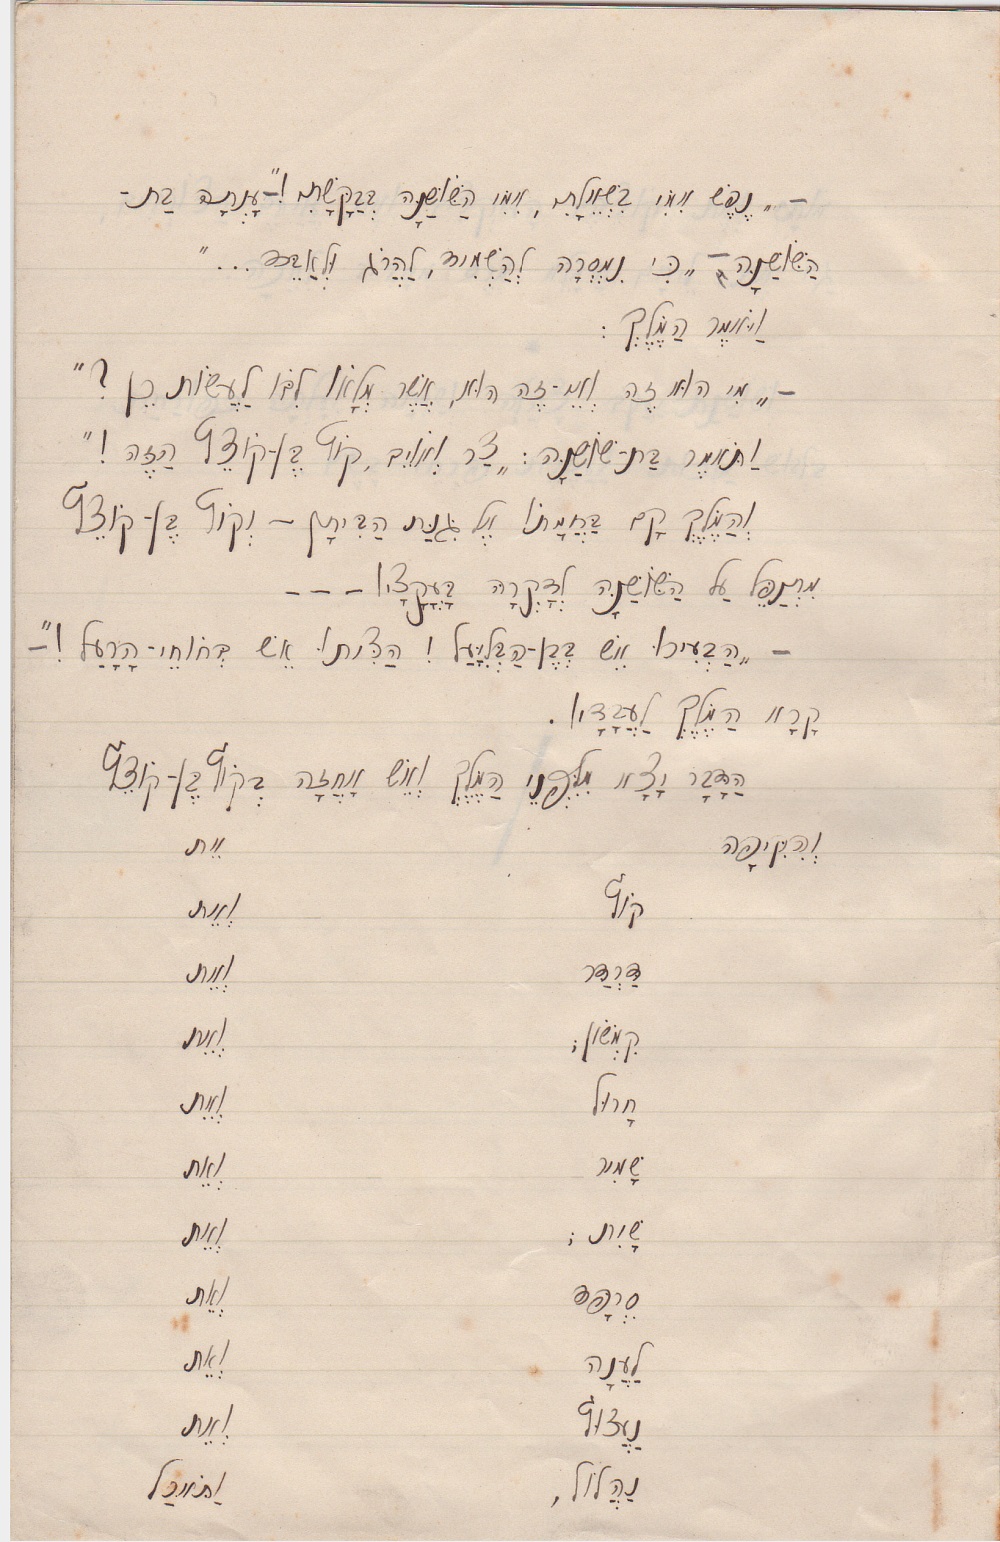 – „נֶפֶשׁ אִמִּי בִּשְׁאֵלָתִי, אִמִּי הַשּׁוֹשַׁנָּה בְּבַקָּשָׁתִי!”– עָנְתָה בַּת-
הַשּׁוֹשַׁנָּה – „כִּי נִמְסְרָה לְהַשְׁמִיד, לַהֲרֹג וּלְאַבֵּד...”
וַיֹּאמֶר הַמֶּלֶךְ:
– „מִי הוּא זֶה וְאֵי-זֶה הוּא, אֲשֶׁר מְלָאוֹ לִבּוֹ לַעֲשׂוֹת כֵּן?”
וַתֹּאמֶר בַּת-שׁוֹשַׁנָּה: „צַר וְאוֹיֵב, קוֹץ בֶּן-קוֹצֵץ הַזֶּה!”
וְהַמֶּלֶךְ קָם בַּחֲמָתוֹ אֶל גִּנַּת הַבִּיתָן – וְקוֹץ בֶּן-קוֹצֵץ
מִתְנַפֵּל עַל הַשּׁוֹשַׁנָּה לְדָקְרָהּ בַּעֲקָצָיו – – –
– „הַבְעִירוּ אֵשׁ בְּבֶן-הַבְּלִיַּעַל! הַצִּיתוּ אֵשׁ בְּחוֹחֵי-הָרָעַל!”–
קָרָא הַמֶּלֶךְ לַעֲבָדָיו.
הַדָּבָר יָצָא מִלִּפְנֵי הַמֶּלֶךְ וְאֵשׁ אָחֲזָה בְּקוֹץ בֶּן-קוֹצֵץ
וְהִקִּיפָה אֵת
קוֹץ וְאֵת
דַּרְדַּר וְאֵת
קִמְּשׁוֹן; וְאֵת
חָרוּל וְאֵת
שָׁמִיר וְאֵת
שָׁיִת; וְאֵת
סִרְפָּד וְאֵת
לַעֲנָה וְאֵת
נַעֲצוּץ וְאֵת
נַהֲלוֹל, וַתֹּאכַל